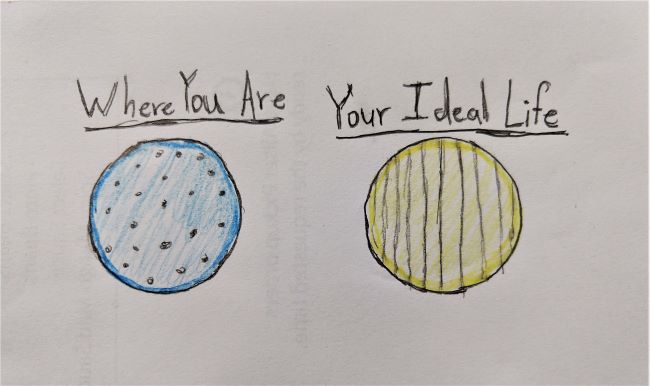 Where You Are
Your Ideal Life